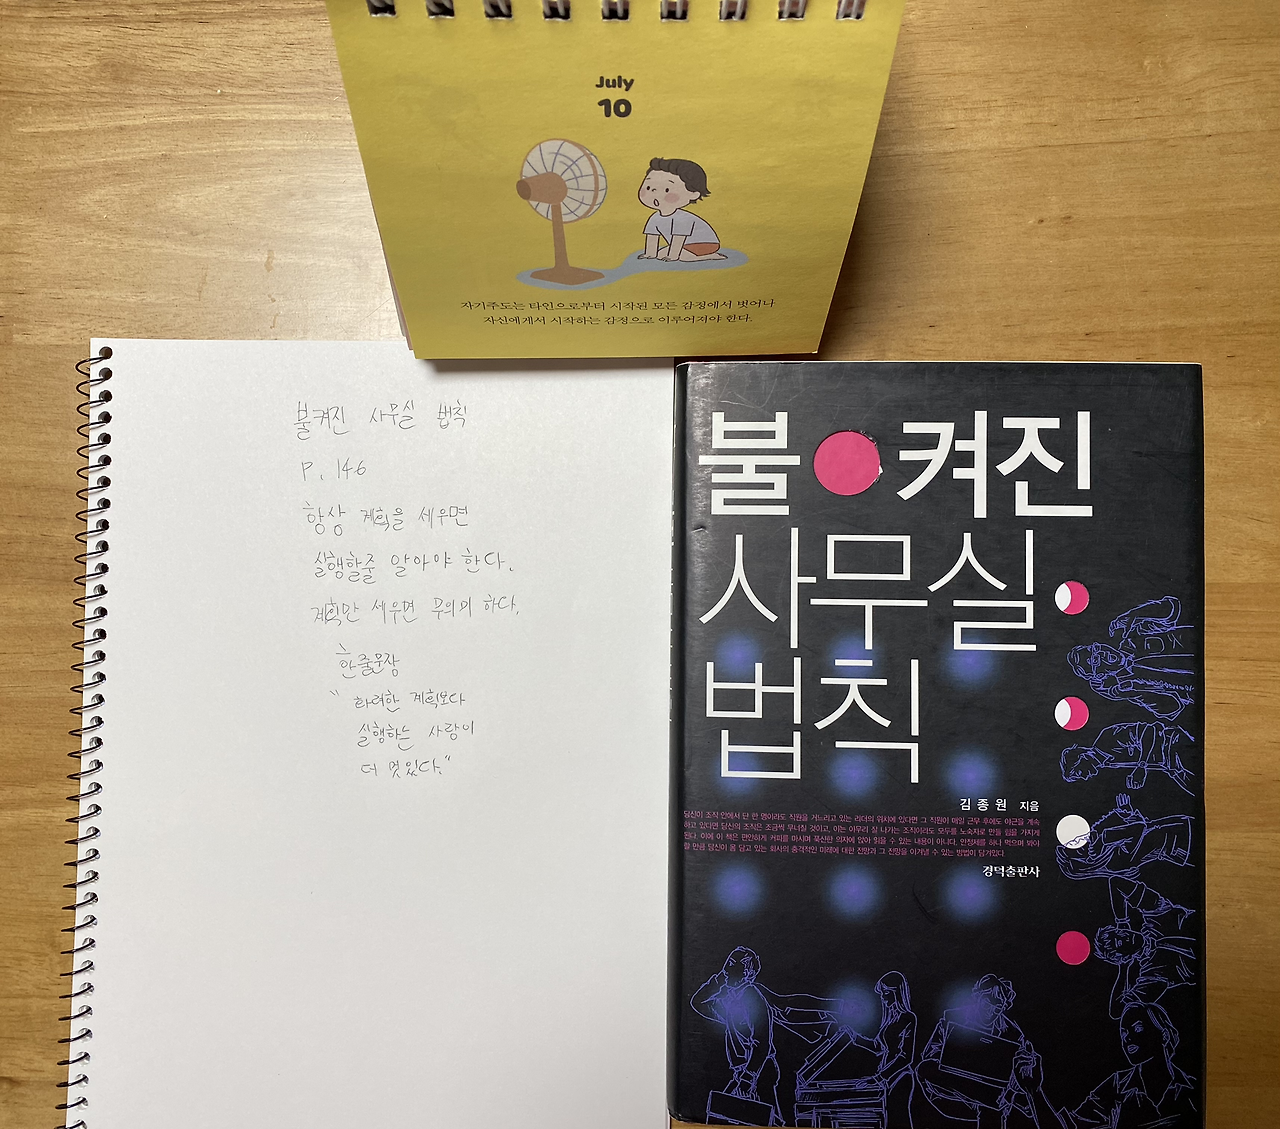 July
10
자기주도는 타인으로부터 시작된 모든 감정에서 벗어나
자신에게서 시작하는 감정으로 이루어져야 한다.
불켜진 사무실 법칙
P. 146
항상 계획을 세우면
실행할줄 알아야 한다.
계획만 세우면 무의미 하다.
한줄문장
"화려한 계획보다
실행하는 사람이
더 멋있다."
불 켜진
사무실
법칙
김종원 지음
당신이 조직 안에서 단 한 명이라도 직원을 거느리고 있는 리더의 위치에 있다면 그 직원이 매일 근무 후에도 야근을 계속
하고 있다면 당신의 조직은 조금씩 무너질 것이고, 이는 아무리 잘 나가는 조직이라도 모두를 노숙자로 만들 힘을 가지게
된다. 이에 이 책은 편안하게 커피를 마시며 푹신한 의자에 앉아 읽을 수 있는 내용이 아니다. 안정제를 하나 먹으며 봐야
할 만큼 당신이 몸 담고 있는 회사의 충격적인 미래에 대한 전망과 그 전망을 이겨낼 수 있는 방법이 담겨있다.
경덕출판사